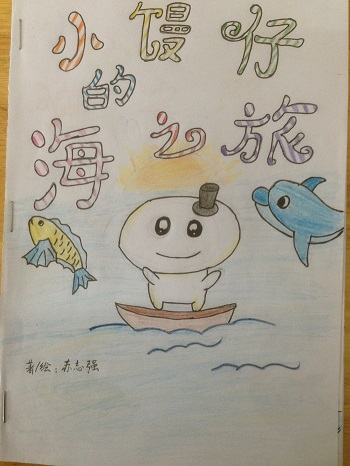 小馒仔
的
海之旅
著/绘：苏志强